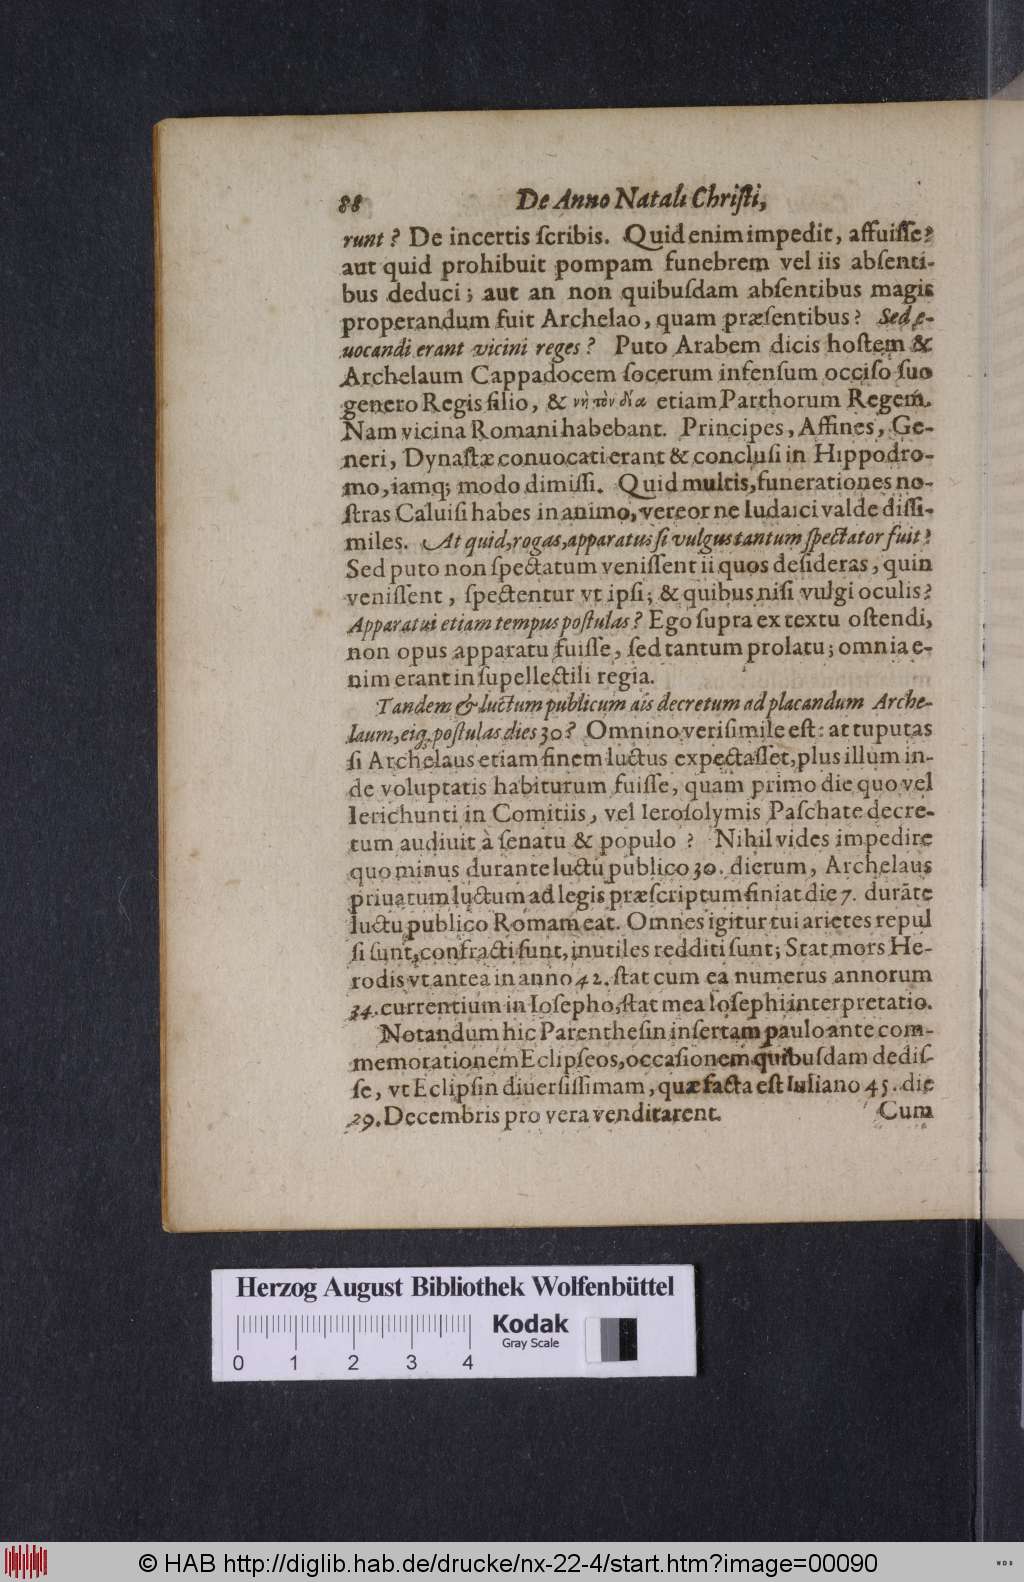 88 De Anno Natali Chriſti,
runt? De incertis ſcribis. Quid enim impedit, affuiſſe?
aut quid prohibuit pompam funebrem vel iis abſenti-
bus deduci; aut an non quibuſdam abſentibus magis
properandum fuit Archelao, quam præſentibus? Sed e-
uocandi erant vicini reges? Puto Arabem dicis hoſtem &
Archelaum Cappadocem ſocerum infenſum occiſo ſuo
genero Regis filio, & νὴ τὸν δία etiam Parthorum Regem.
Nam vicina Romani habebant. Principes, Affines, Ge-
neri, Dynaſtæ conuocati erant & concluſi in Hippodro-
mo, iamq; modo dimiſſi. Quid multis, funerationes no-
ſtras Caluiſi habes in animo, vereor ne Iudaici valde diſſi-
miles. At quid, rogas, apparatus ſi vulgus tantum ſpectator fuit?
Sed puto non ſpectatum veniſſent ii quos deſideras, quin
veniſſent, ſpectentur vt ipſi; & quibus niſi vulgi oculis?
Apparatui etiam tempus poſtulas? Ego ſupra ex textu oſtendi,
non opus apparatu fuiſſe, ſed tantum prolatu; omnia e-
nim erant in ſupellectili regia.
Tandem & luctum publicum ais decretum ad placandum Arche-
laum, eiq; poſtulas dies 30? Omnino veriſimile eſt: at tu putas
ſi Archelaus etiam finem luctus expectaſſet, plus illum in-
de voluptatis habiturum fuiſſe, quam primo die quo vel
Ierichunti in Comitiis, vel Ieroſolymis Paſchate decre-
tum audiuit à ſenatu & populo? Nihil vides impedire
quo minus durante luctu publico 30. dierum, Archelaus
priuatum luctum ad legis præſcriptum finiat die 7. durāte
luctu publico Romam eat. Omnes igitur tui arietes repul
ſi ſunt, confracti ſunt, inutiles redditi ſunt; Stat mors He-
rodis vt antea in anno 42. ſtat cum ea numerus annorum
34. currentium in Ioſepho, ſtat mea Ioſephi interpretatio.
Notandum hic Parentheſin inſertam paulo ante com-
memorationem Eclipſeos, occaſionem quibuſdam dediſ-
ſe, vt Eclipſin diuerſiſſimam, quæ facta eſt Iuliano 45. die
29. Decembris pro vera venditarent. Cum
Herzog August Bibliothek Wolfenbüttel
Kodak
Gray Scale
0 1 2 3 4
© HAB http://diglib.hab.de/drucke/nx-22-4/start.htm?image=00090